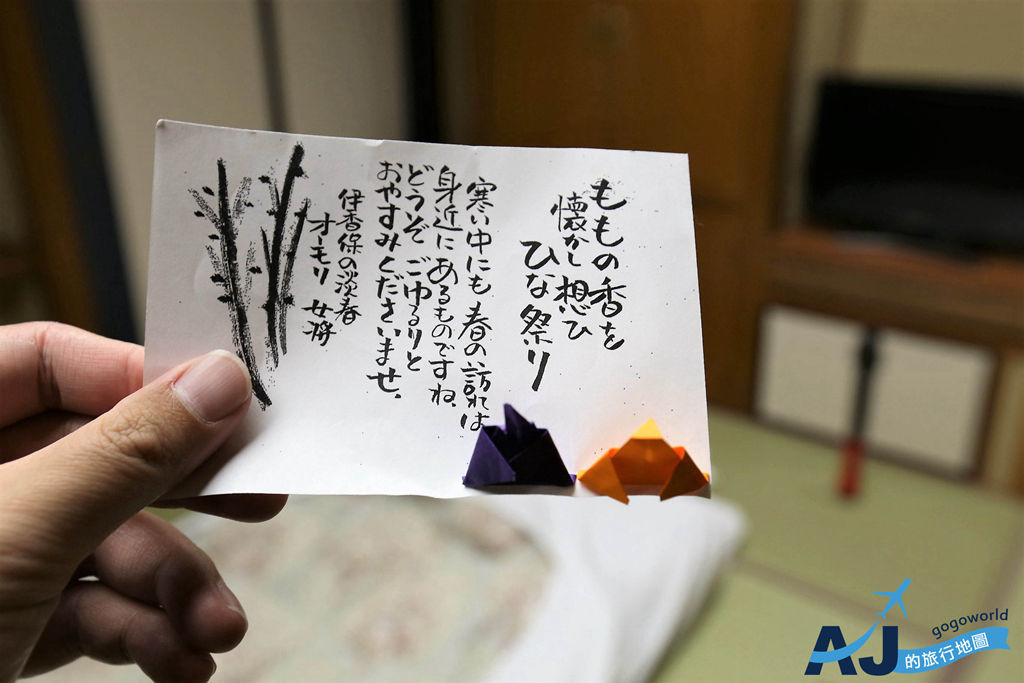 ももの香を
懐かし想ひ
ひな祭り
寒い中にも春の訪れは
身近にあるものですね、
どうぞごゆるりと
おやすみくださいませ、
伊香保の淡春
オーモリ 女将
AJ
gogoworld
的旅行地圖